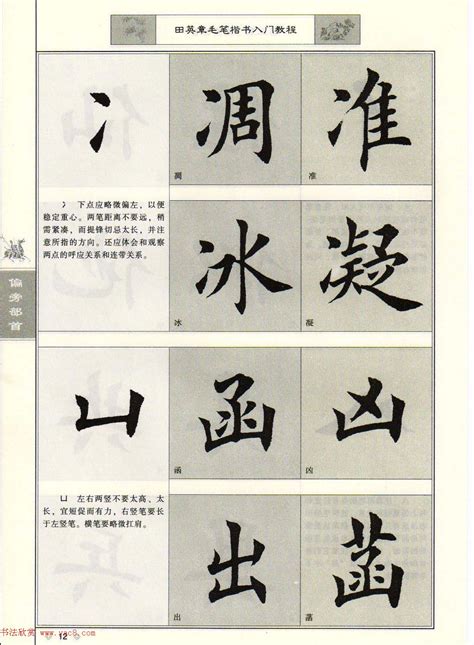 田英章毛笔楷书入门教程
冫 凋 准
凋 准
冫 下点应略微偏左，以便
稳定重心。两笔距离不要远，稍
需紧凑，而提锋切忌太长，并注
意所指的方向。还应体会和观察
两点的呼应关系和连带关系。
冰 凝
冰 凝
偏旁部首
凵 函 凶
函 凶
凵 左右两竖不要太高、太
长，宜短促而有力，右竖笔要长
于左竖笔。横笔要略微扛肩。
出 菡
出 菡
12
书法欣赏 www.yac8.com